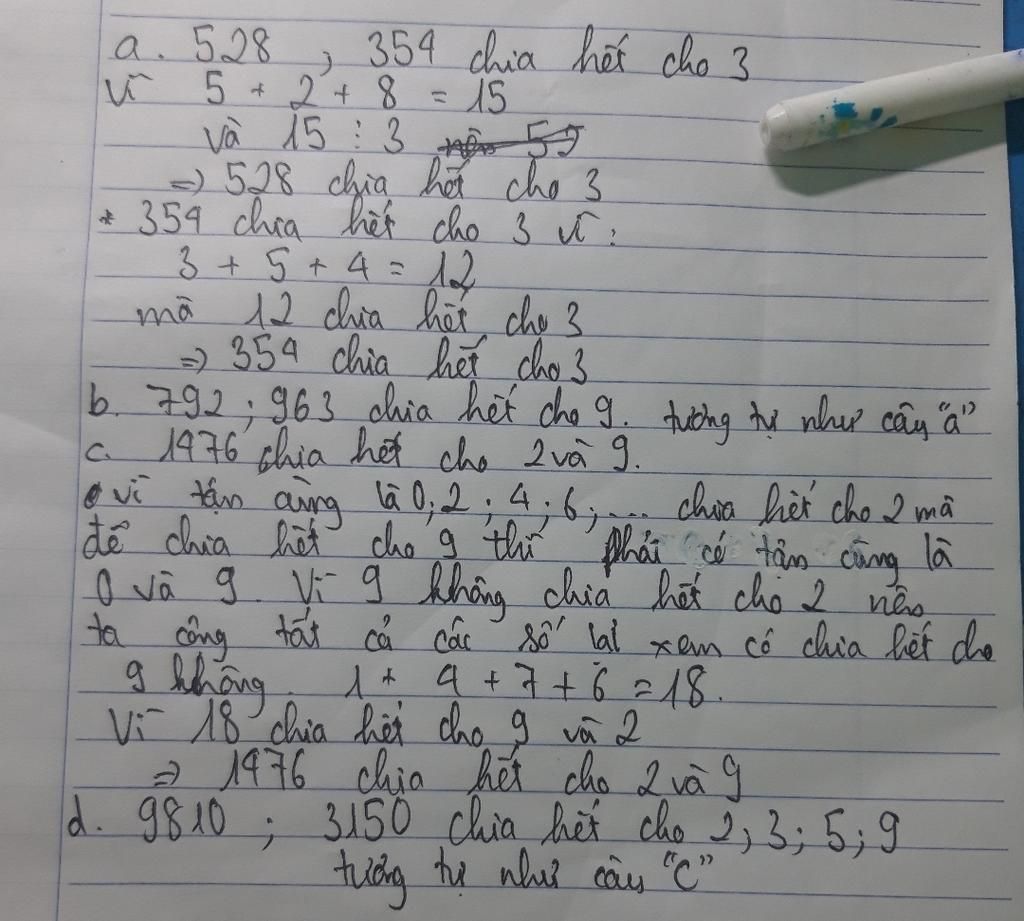 a. 528 ; 354 chia hết cho 3
Vì 5 + 2 + 8 = 15
và 15 ⋮ 3
=> 528 chia hết cho 3
* 354 chia hết cho 3 vì :
3 + 5 + 4 = 12
mà 12 chia hết cho 3
=> 354 chia hết cho 3
b. 792 ; 963 chia hết cho 9. tương tự như câu "a"
c. 1476 chia hết cho 2 và 9.
vì tận cùng là 0; 2 ; 4 ; 6 ; .... chia hết cho 2 mà
để chia hết cho 9 thì phải có tận cùng là
0 và 9. Vì 9 không chia hết cho 2 nên
ta công tất cả các số lại xem có chia hết cho
9 không. 1 + 4 + 7 + 6 = 18.
Vì 18 chia hết cho 9 và 2
=> 1476 chia hết cho 2 và 9
d. 9810 ; 3150 chia hết cho 2; 3; 5; 9
tương tự như câu "C"